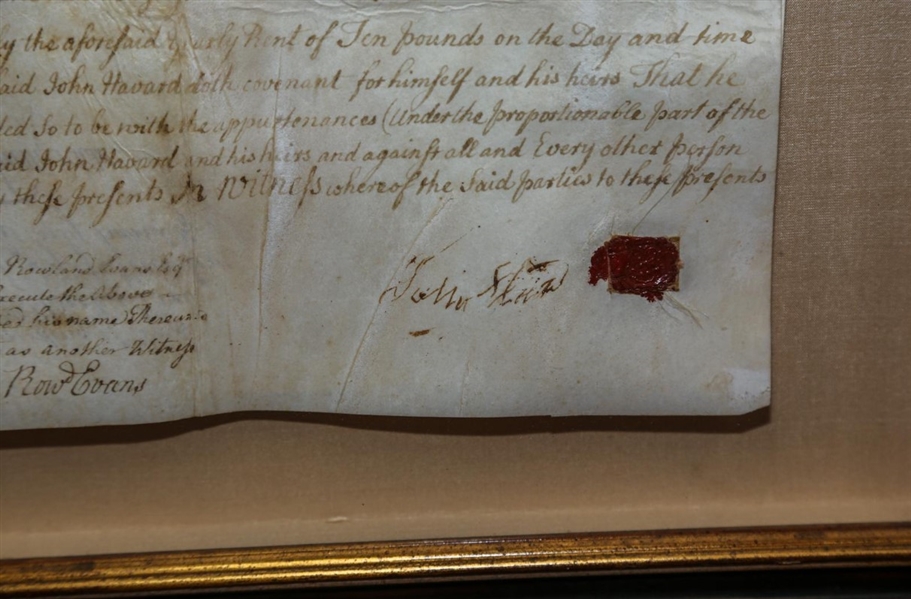 y the aforesaid yearly Rent of Ten pounds on the Day and time
said John Havard doth covenant for himself and his heirs That he
ded So to be with the appurtenances (Under the proportionable part of the
aid John Havard and his heirs and against all and Every other person
these presents In Witness whereof the Said parties to these presents
Rowland Evans Esqr
execute the Above
his name Thereunto
as another Witness
Rowd Evans
John